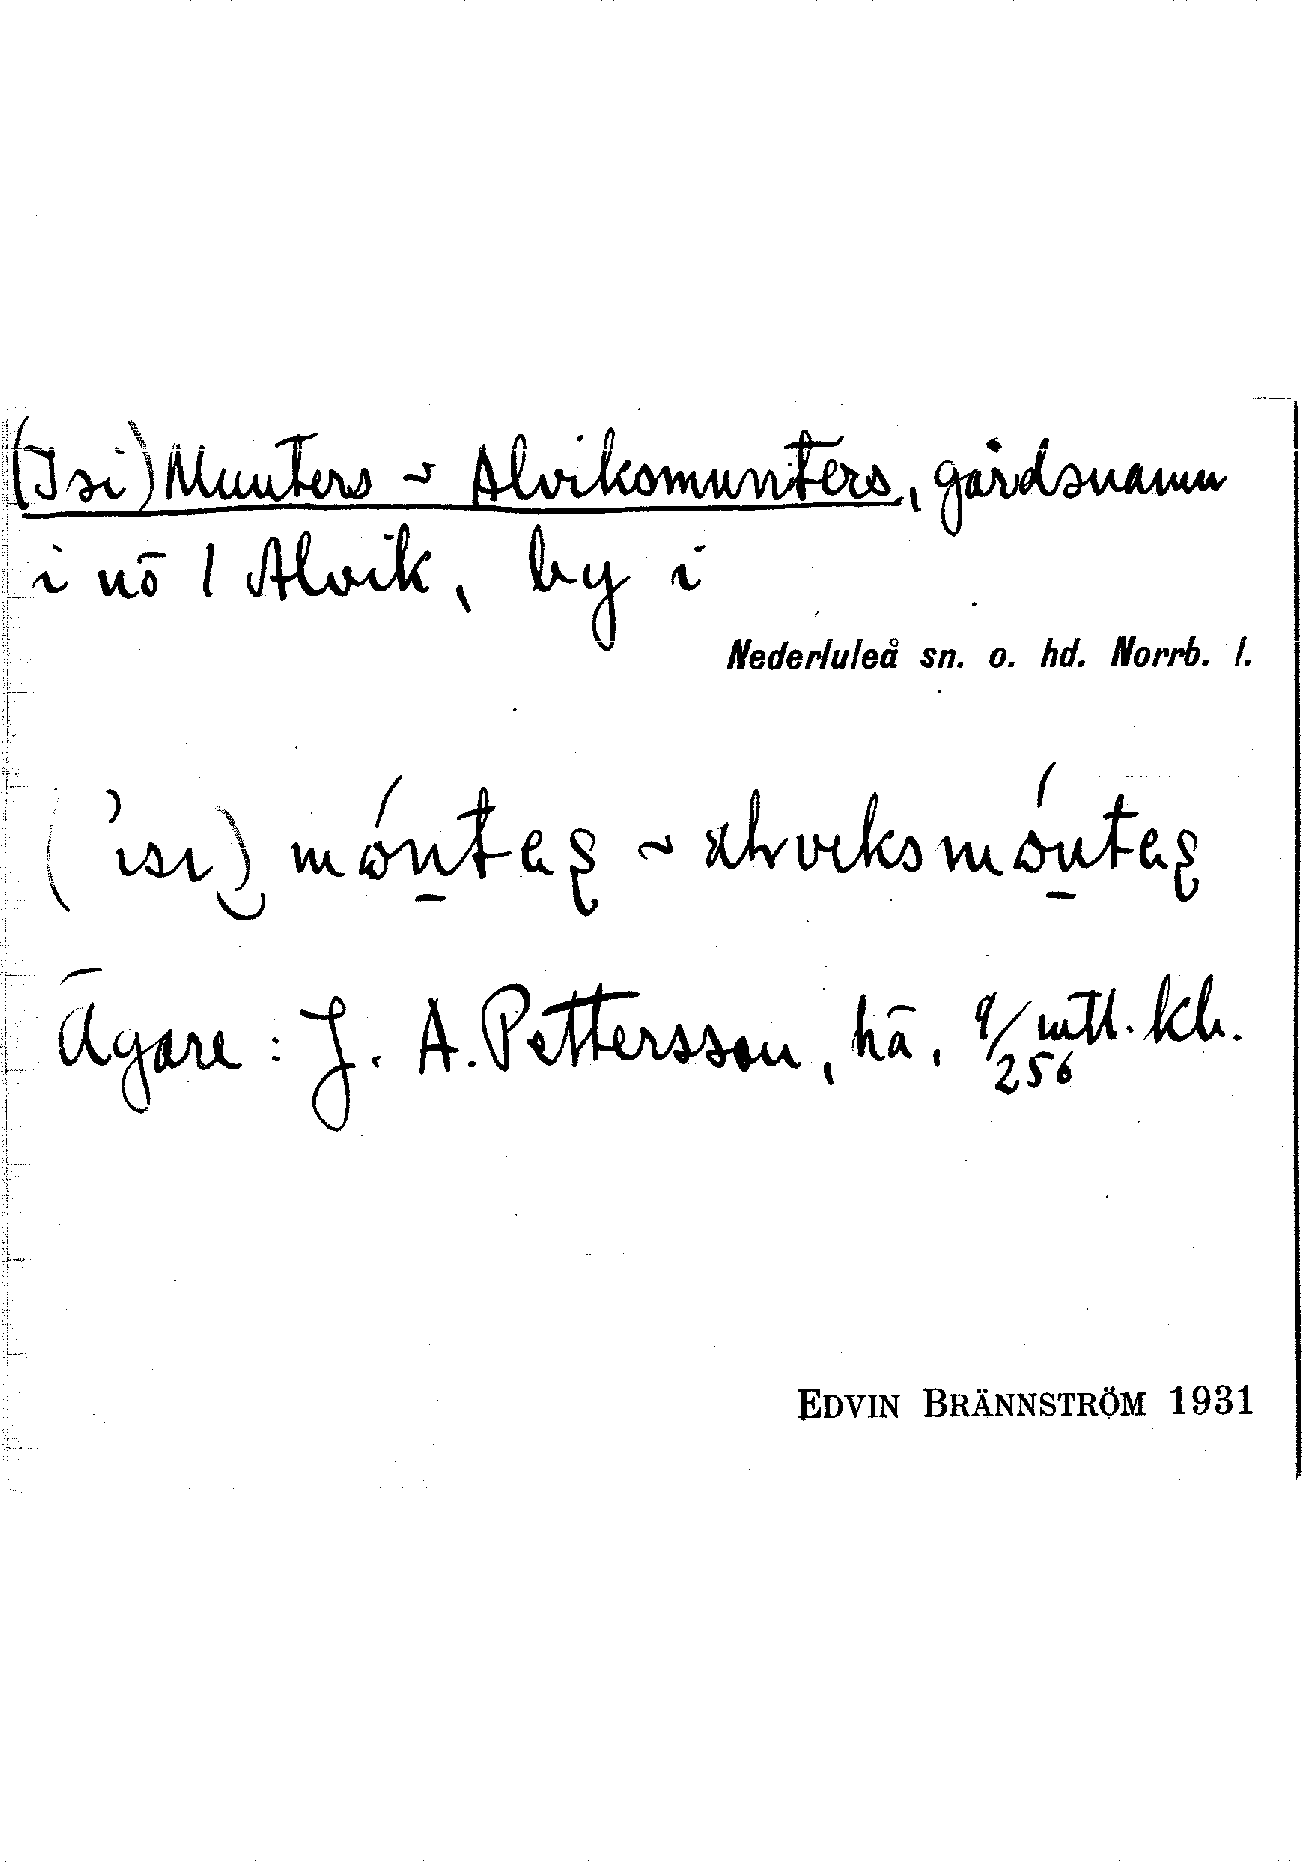 (Isi) Munters ~ Alviksmunters, gårdsnamn
i nō 1 Alvik, by i
Nederluleå sn. o. hd. Norrb. l.
Ägare : J. A. Pettersson, hā, 9/256 mtl. kh.
EDVIN BRÄNNSTRÖM 1931